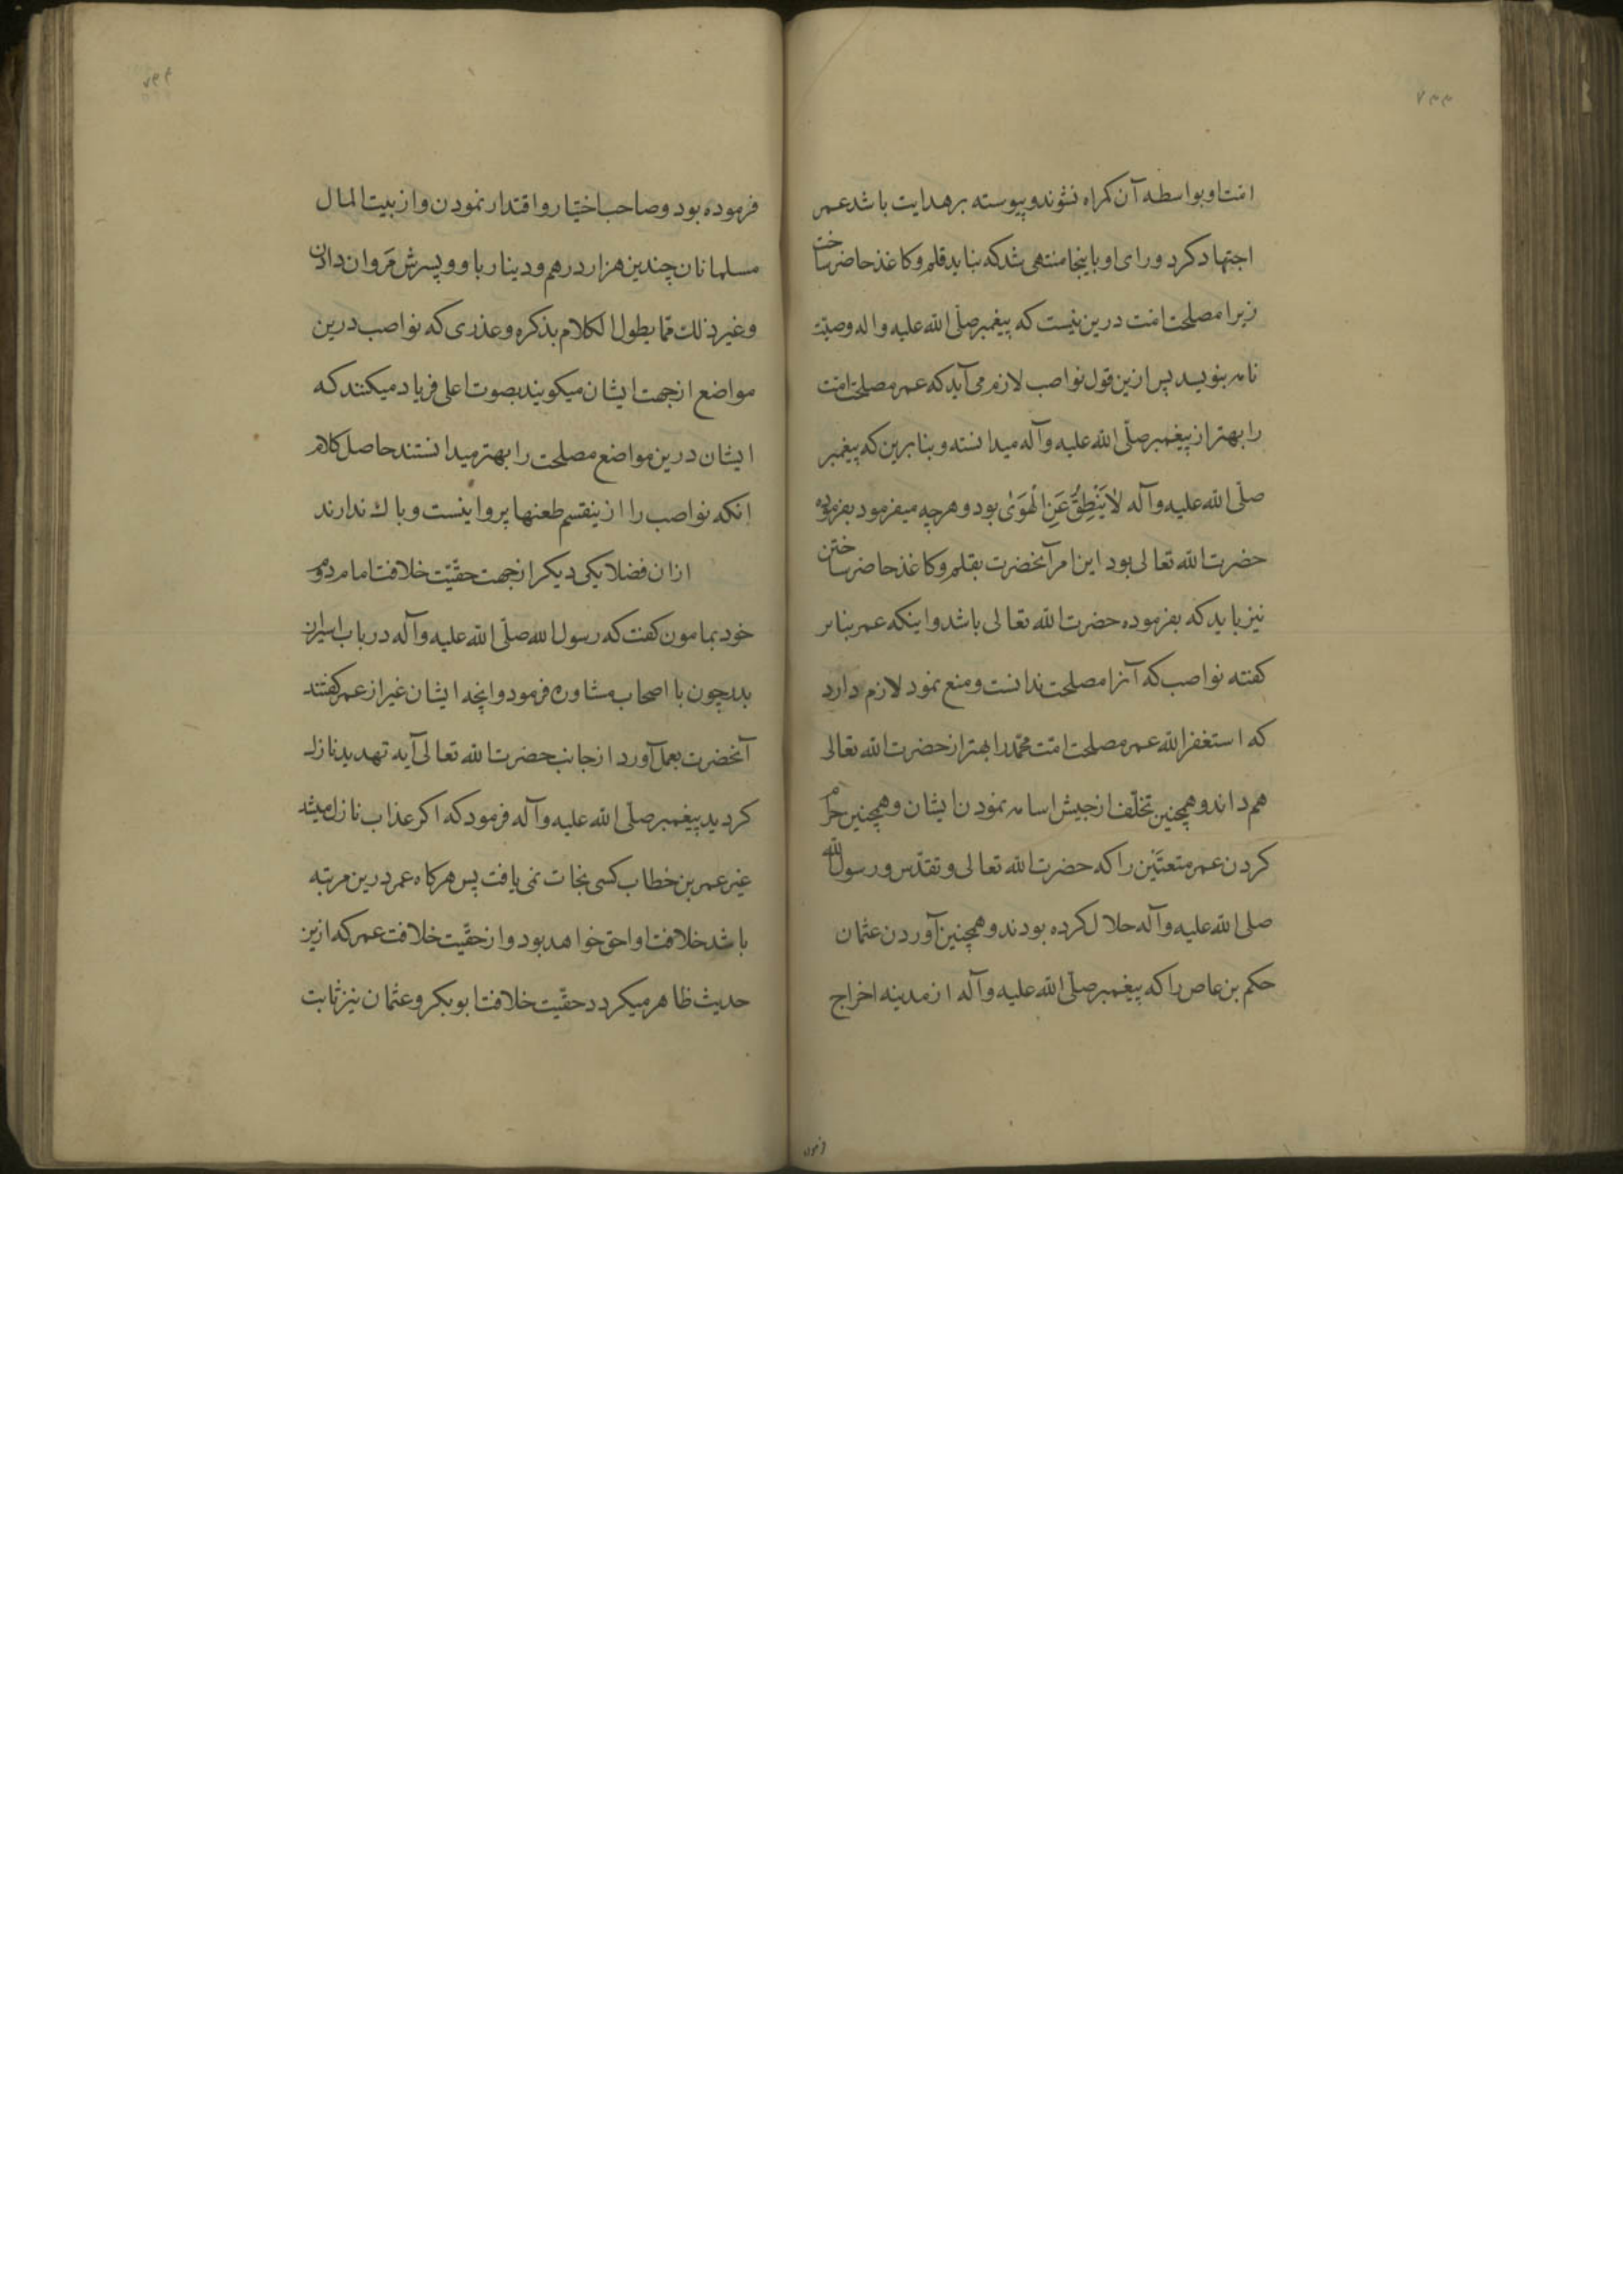 امت او بواسطه آن کمراه نشوند و پیوسته بر هدایت باشد عمر
اجتهاد کرد و رای او باینجا منتهی شد که نباید قلم و کاغذ حاضر ساخت
زیرا مصلحت امت درین نیست که پیغمبر صلّی الله علیه و اله وصیّت
نامه بنویسد پس ازین قول نواصب لازم می آید که عمر مصلحت امّت
را بهتر از پیغمبر صلّی الله علیه و آله میدانسته و بنا برین که پیغمبر
صلّی الله علیه و آله لاٰ یَنْطِقُ عَنِ الْهَوَیٰ بود و هرچه میفرمود بفرموده
حضرت الله تعالی بود این امر آنحضرت بقلم و کاغذ حاضر ساختن
نیز باید که بفرموده حضرت الله تعالی باشد و اینکه عمر بنا بر
کفته نواصب که آنرا مصلحت ندانست و منع نمود لازم دارد
که استغفر الله عمر مصلحت امّت محمّد را بهتر از حضرت الله تعالی
هم داند و همچنین تخلّف از جیش اسامه نمودن ایشان و همچنین حرام
کردن عمر متعتَین را که حضرت الله تعالی و تقدّس و رسول الله
صلی الله علیه و آله حلال کرده بودند و همچنین آوردن عثمان
حکم بن عاص را که پیغمبر صلّی الله علیه و آله از مدینه اخراج
فرموده بود و صاحب اختیار و اقتدار نمودن و از بیت المال
مسلمانان چندین هزار درهم و دینار باو و پسرش مَروان دادن
و غیر ذلك ممّا یطول الکلام بذکره و عذری که نواصب درین
مواضع از جهت ایشان میکویند بصوت اعلی فریاد میکنند که
ایشان درین مواضع مصلحت را بهتر میدانستند حاصل کلام
انکه نواصب را ازینقسم طعنها پروا نیست و باك ندارند
ازان فضلا یکی دیکر از جهت حقّیّت خلافت امام دوم
خود بمامون کفت که رسول الله صلّی الله علیه و آله در باب اسیران
بدر چون با اصحاب مشاوره فرمود و انچه ایشان غیر از عمر کفتند
آنحضرت بعمل آورد از جانب حضرت الله تعالی آیه تهدید نازل
کردید پیغمبر صلّی الله علیه و آله فرمود که اکر عذاب نازل میشد
غیر عمر بن خطاب کسی نجات نمی یافت پس هرکاه عمر درین مرتبه
باشد خلافت او احق خواهد بود و از حقّیت خلافت عمر که ازین
حدیث ظاهر میکردد حقّیت خلافت ابوبکر و عثمان نیز ثابت